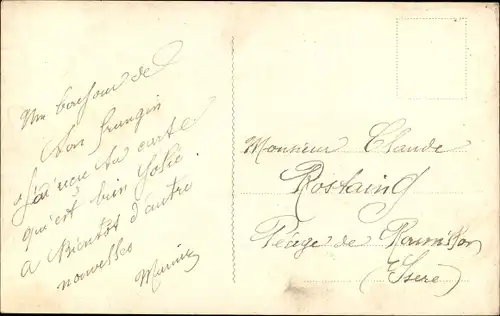 Un bonjour de
ton frangin
J'ai reçu ta carte
qu'est bien Jolie.
a Bientôt d'autre
nouvelles
Monsieur Claude
Rostaing
Péage de Roussillon
(Isère)